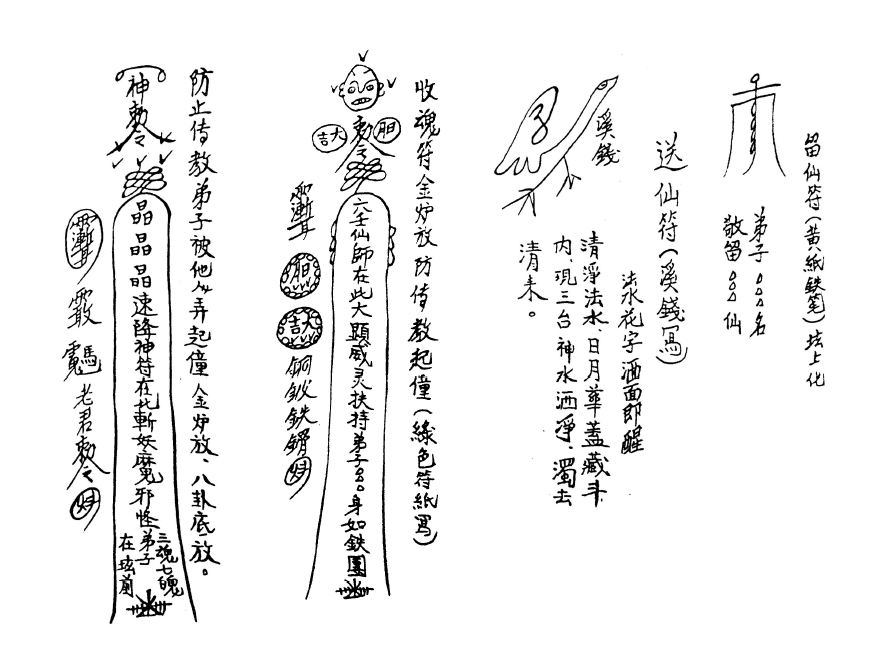 留仙符(黄紙鉄笔)坛上化
弟子ooo名
敬留ooo仙
送仙符(溪錢寫)
溪錢
法水花字洒面即醒
清淨法水、日月華蓋藏斗
内、現三台神水洒淨、濁去
清来。
收魂符金炉放防傳教起僮(綠色符紙寫)
敕令
吉大
胆
六壬仙師在此大顯威灵扶持弟子ooo身如鉄圍
胆
吉大
銅鈙鉄鎖
防止傳教弟子被他人弄起僮金炉放、八卦底放。
神敕令
晶晶晶速降神符在此斬妖魔邪怪弟子
三魂七魄
在坛前
老君敕令